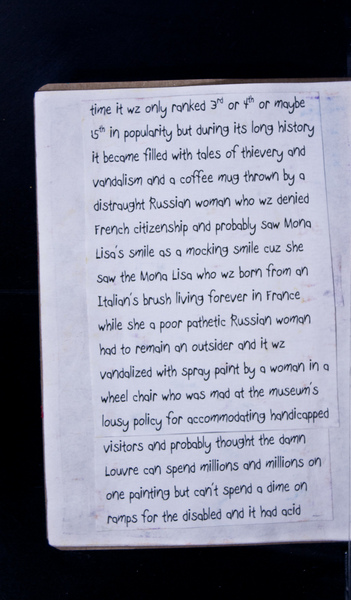 time it wz only ranked 3rd or 4th or maybe
15th in popularity but during its long history
it became filled with tales of thievery and
vandalism and a coffee mug thrown by a
distraught Russian woman who wz denied
French citizenship and probably saw Mona
Lisa's smile as a mocking smile cuz she
saw the Mona Lisa who wz born from an
Italian's brush living forever in France
while she a poor pathetic Russian woman
had to remain an outsider and it wz
vandalized with spray paint by a woman in a
wheel chair who was mad at the museum's
lousy policy for accommodating handicapped
visitors and probably thought the damn
Louvre can spend millions and millions on
one painting but can't spend a dime on
ramps for the disabled and it had acid